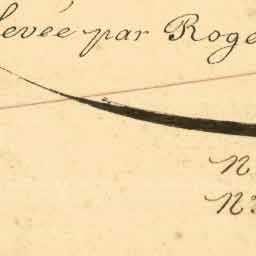 levée par Roge
N
N